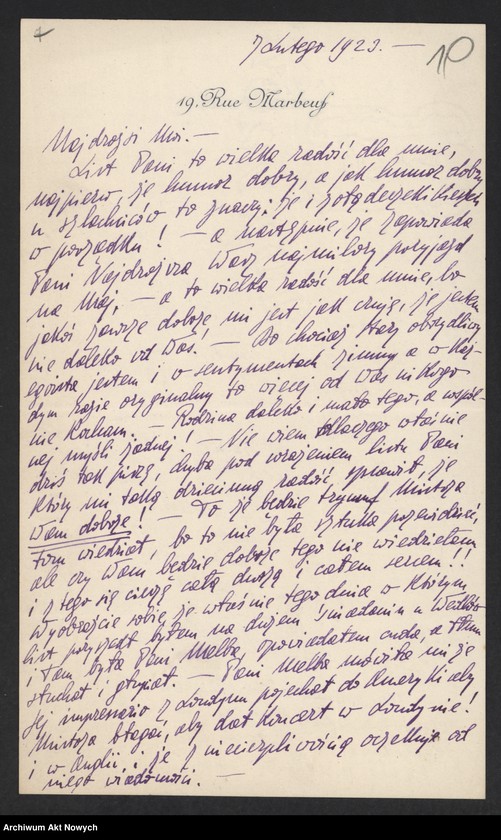 7 Lutego 1923. —
10
19, Rue Marbeuf
Najdrożsi Moi. —
List Pani to wielka radość dla mnie,
najpierw, że humor dobry, a jak humor dobry
u szlachciców to znaczy: że i żołądeczki
w porządku! — a następnie, że zapowiada
Pani Najdroższa Wasz najmilszy przyjazd
na Maj, — a to wielka radość dla mnie, bo
jakoś zawsze dobrze mi jest jak czuję, że jestem
nie daleko od Was. — Bo chociaż stary obrzydliwy
egoista jestem i w sentymentach zimny a w każ-
dym razie oryginalny to więcej od Was nikogo
nie kocham. — Rodzina daleko i mało tego, a wspól-
nej myśli żadnej! — Nie wiem dlaczego właśnie
dziś tak piszę, chyba pod wrażeniem listu Pani
który mi taką dziecinną radość sprawił, że
Wam dobrze! — To że będzie Mistrza
wiedział, bo to nie była sztuka przewidzieć,
ale czy Wam będzie dobrze tego nie wiedziałem
i z tego się cieszę całą duszą i całem sercem!!
Wyobraźcie sobie, że właśnie tego dnia w którym
list przyszedł byłem na dużem śniadaniu u
i tam była Pani Melba, opowiadałem cuda, a tłum
słuchał i głupiał. — Pani Melba mówiła mi że
jej impresario z Londynu pojechał do Ameryki aby
Mistrza błagać, aby dał koncert w Londynie!
i w Anglii.. i że z niecierpliwością oczekuje od
niego wiadomości. —
Archiwum Akt Nowych